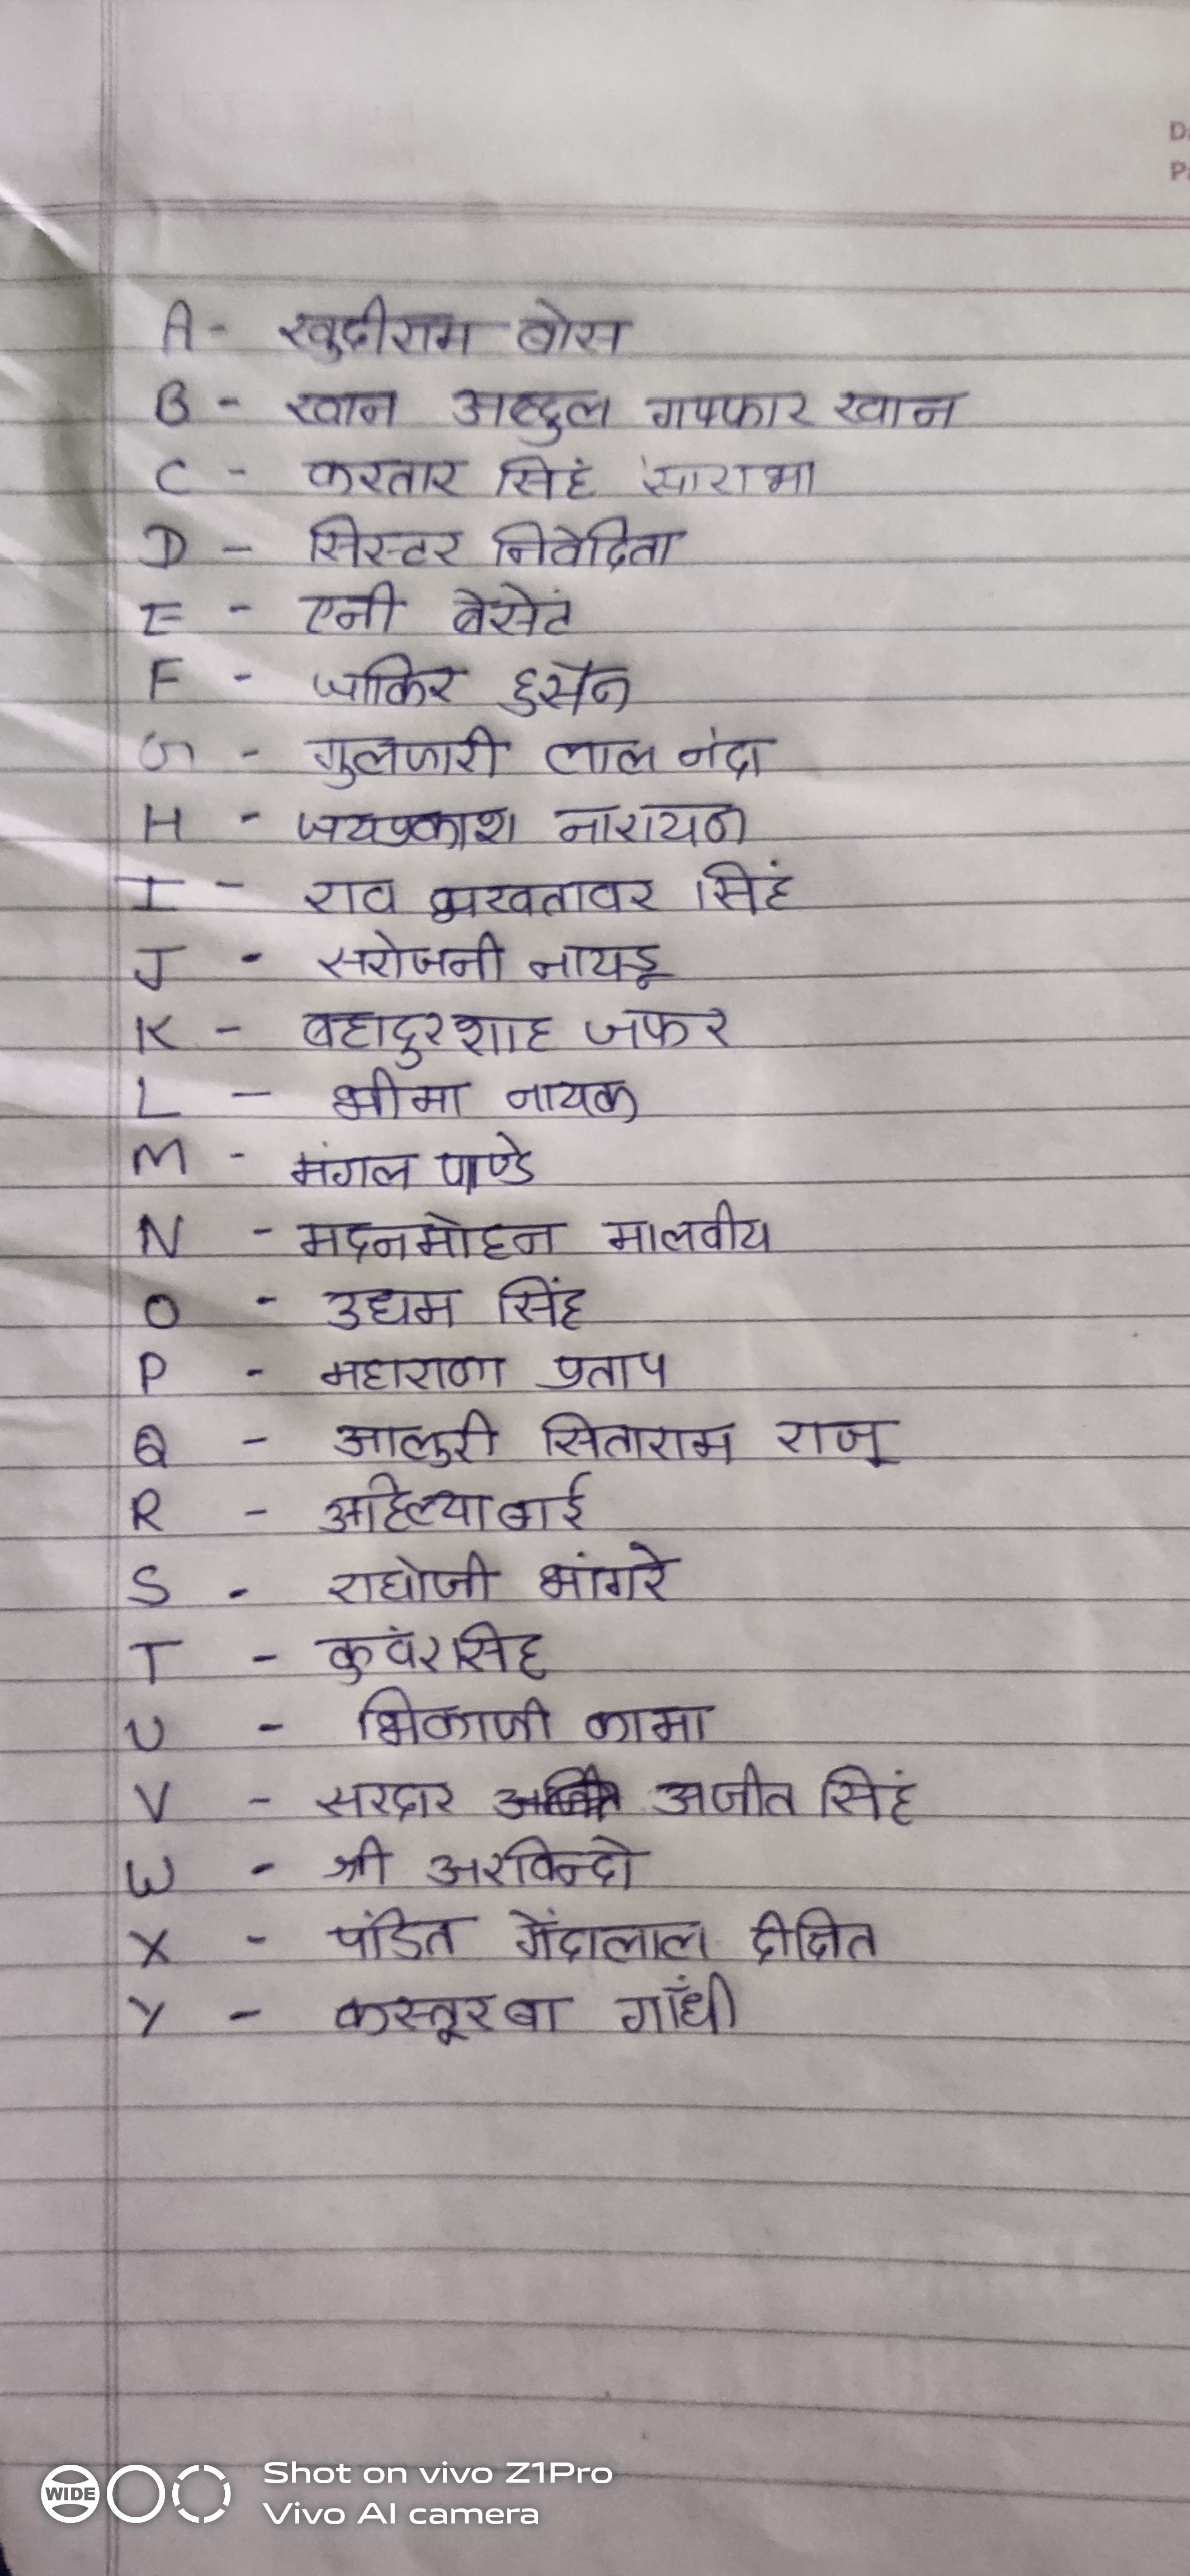 D
P
A - खुदीराम बोस
B - खान अब्दुल गफ्फार खान
C - करतार सिहं साराभा
D - सिस्टर निवेदिता
E - एनी बेसेटं
F - जाकिर हुसैन
G - गुलजारी लाल नंदा
H - जयप्रकाश नारायण
I - राव बखतावर सिहं
J - सरोजनी नायडू
K - बहादुरशाह जफर
L - भीमा नायक
M - मंगल पाण्डे
N - मदनमोहन मालवीय
O - उधम सिंह
P - महाराणा प्रताप
Q - आलुरी सिताराम राजू
R - अहिल्याबाई
S - राघोजी भांगरे
T - कुवंरसिह
U - भिकाजी कामा
V - सरदार अजीत सिहं
W - श्री अरविन्दो
X - पंडित गेंदालाल दीक्षित
Y - कस्तूरबा गाँधी
WIDE
Shot on vivo Z1Pro
Vivo AI camera